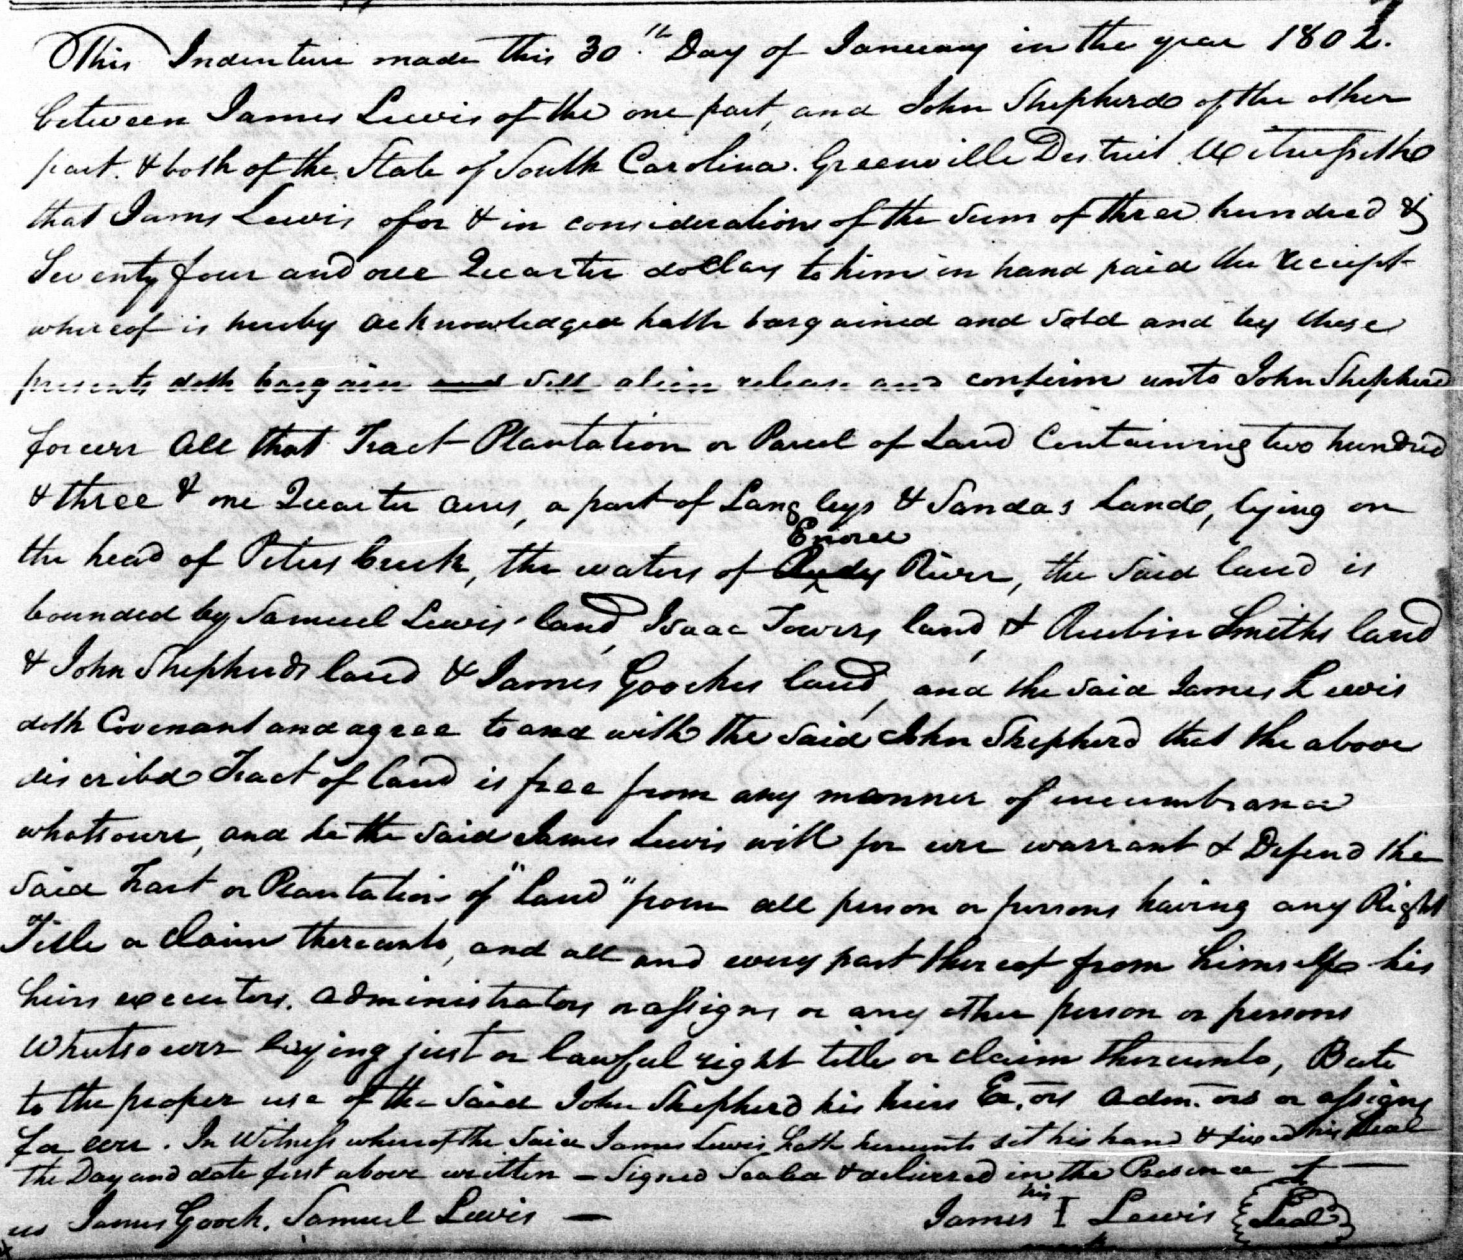 This Indenture made this 30th Day of January in the year 1802.
between James Lewis of the one part, and John Shepherd of the other
part. & both of the State of South Carolina. Greenville District Witnesseth
that James Lewis for & in consideration of the sum of three hundred &
Seventy four and one Quarter dollars to him in hand paid the receipt
whereof is hereby acknowledged hath bargained and sold and by these
presents doth bargain and sell alien release and confirm unto John Shepherd
forever all that Tract Plantation or Parcel of Land Containing two hundred
& three & one Quarter acres, a part of Langleys & Sandas Lands, lying on
the head of Peters Creek, the waters of Enoree River, the said land is
bounded by Samuel Lewis' land, Isaac Towers land, & Reubin Smiths land
& John Shepherds land & James Gooches land, and the said James Lewis
doth Covenant and agree to and with the said John Shepherd that the above
discribd Tract of land is free from any manner of incumbrance
whatsoever, and he the said James Lewis will for ever warrant & Defend the
said Tract or Plantation of "land" from all person or persons having any Right
Title or claim thereunto, and all and every part thereof from himself his
heirs executors. administrators or assigns or any other person or persons
whatsoever laying just or lawful right title or claim thereunto, But
to the proper use of the said John Shepherd his heirs Ex.ors adm.ors or assigns
for ever. In Witness whereof the said James Lewis hath hereunto set his hand & fixed his Seal
the Day and date first above written — Signed Sealed & delivered in the Presence of —
us James Gooch. Samuel Lewis — James his I mark Lewis Seal